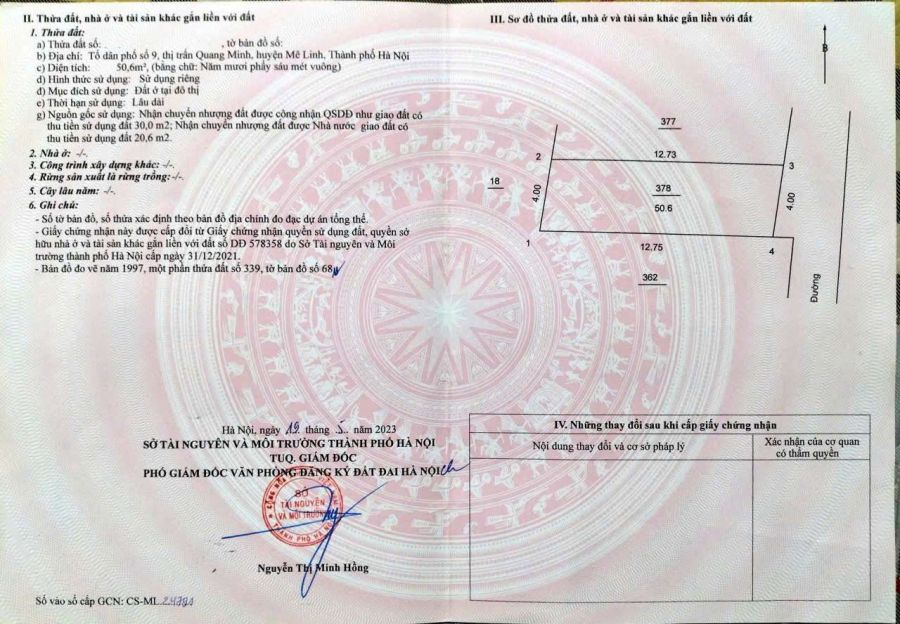 II. Thửa đất, nhà ở và tài sản khác gắn liền với đất
1. Thửa đất:
a) Thửa đất số: , tờ bản đồ số:
b) Địa chỉ: Tổ dân phố số 9, thị trấn Quang Minh, huyện Mê Linh, Thành phố Hà Nội
c) Diện tích: 50,6m², (bằng chữ: Năm mươi phẩy sáu mét vuông)
d) Hình thức sử dụng: Sử dụng riêng
đ) Mục đích sử dụng: Đất ở tại đô thị
e) Thời hạn sử dụng: Lâu dài
g) Nguồn gốc sử dụng: Nhận chuyển nhượng đất được công nhận QSDĐ như giao đất có
thu tiền sử dụng đất 30,0 m2; Nhận chuyển nhượng đất được Nhà nước giao đất có
thu tiền sử dụng đất 20,6 m2.
2. Nhà ở: -/-.
3. Công trình xây dựng khác: -/-.
4. Rừng sản xuất là rừng trồng:-/-.
5. Cây lâu năm: -/-.
6. Ghi chú:
- Số tờ bản đồ, số thửa xác định theo bản đồ địa chính đo đạc dự án tổng thể.
- Giấy chứng nhận này được cấp đổi từ Giấy chứng nhận quyền sử dụng đất, quyền sở
hữu nhà ở và tài sản khác gắn liền với đất số DĐ 578358 do Sở Tài nguyên và Môi
trường thành phố Hà Nội cấp ngày 31/12/2021.
- Bản đồ đo vẽ năm 1997, một phần thửa đất số 339, tờ bản đồ số 68
Hà Nội, ngày 19 tháng 5. năm 2023
SỞ TÀI NGUYÊN VÀ MÔI TRƯỜNG THÀNH PHỐ HÀ NỘI
TUQ. GIÁM ĐỐC
PHÓ GIÁM ĐỐC VĂN PHÒNG ĐĂNG KÝ ĐẤT ĐAI HÀ NỘI
SỞ
TÀI NGUYÊN
VÀ MÔI TRƯỜNG
THÀNH PHỐ HÀ NỘI
Nguyễn Thị Minh Hồng
Số vào sổ cấp GCN: CS-ML
III. Sơ đồ thửa đất, nhà ở và tài sản khác gắn liền với đất
B
377
2
12.73
3
18
378
4.00
4.00
50.6
1
12.75
4
362
Đường
IV. Những thay đổi sau khi cấp giấy chứng nhận
Nội dung thay đổi và cơ sở pháp lý
Xác nhận của cơ quan
có thẩm quyền